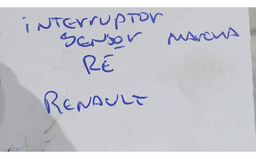 INTERRUPTOR
SENSOR MARCHA
RÉ
RENAULT